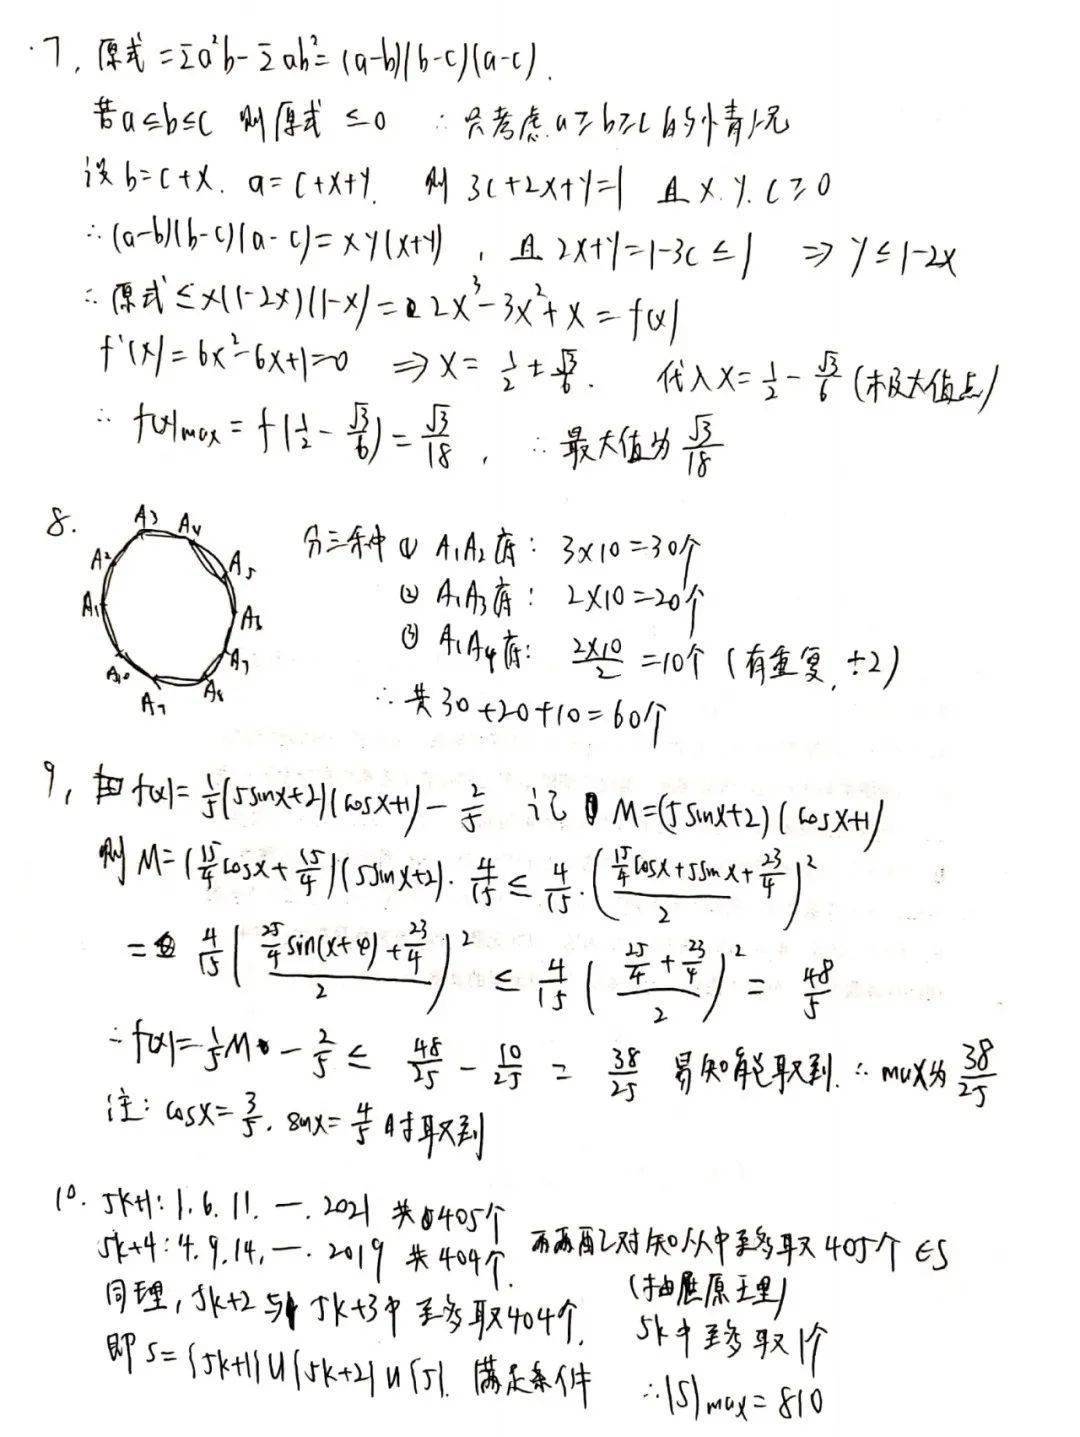 7, 原式 = Σa²b - Σab² = (a-b)(b-c)(a-c).
若a≤b≤c 则原式 ≤0 ∴ 只考虑 a≥b≥c 的情况
设 b=c+x. a=c+x+y. 则 3c+2x+y=1 且 x.y.c≥0
∴ (a-b)(b-c)(a-c)=xy(x+y), 且 2x+y=1-3c≤1 ⇒ y≤1-2x
∴ 原式≤x(1-2x)(1-x)=2x³-3x²+x=f(x)
f'(x)=6x²-6x+1=0 ⇒ x=1/2±√3/6. 代入x=1/2-√3/6 (极大值点)
∴ f(x)max=f(1/2-√3/6)=√3/18, ∴ 最大值为√3/18
8.
A3 A4
A2 A5
A1 A6
A10 A7
A7 A8
分三种 ① A1A2底: 3×10=30个
② A1A3底: 2×10=20个
③ A1A4底: 2×10/2=10个 (有重复, ÷2)
∴ 共30+20+10=60个
9, 由 f(x)=1/5(5sinx+2)(cosx+1)-2/5 记 M=(5sinx+2)(cosx+1)
则 M=(15/4cosx+15/4)(5sinx+2)·4/15≤4/15·((15/4cosx+5sinx+23/4)/2)²
=4/15((25/4sin(x+φ)+23/4)/2)²≤4/15((25/4+23/4)/2)²=48/5
∴ f(x)=1/5M-2/5≤48/25-10/25=38/25 易知能取到. ∴ max为38/25
注: cosx=3/5. sinx=4/5 时取到
10. 5k+1: 1. 6. 11. —. 2021 共405个
5k+4: 4. 9. 14. —. 2019 共404个.
两两配对知从中至多取405个∈S
(抽屉原理)
同理, 5k+2与5k+3中至多取404个.
5k中至多取1个
即 S={5k+1}∪{5k+2}∪{5}. 满足条件
∴|S|max=810